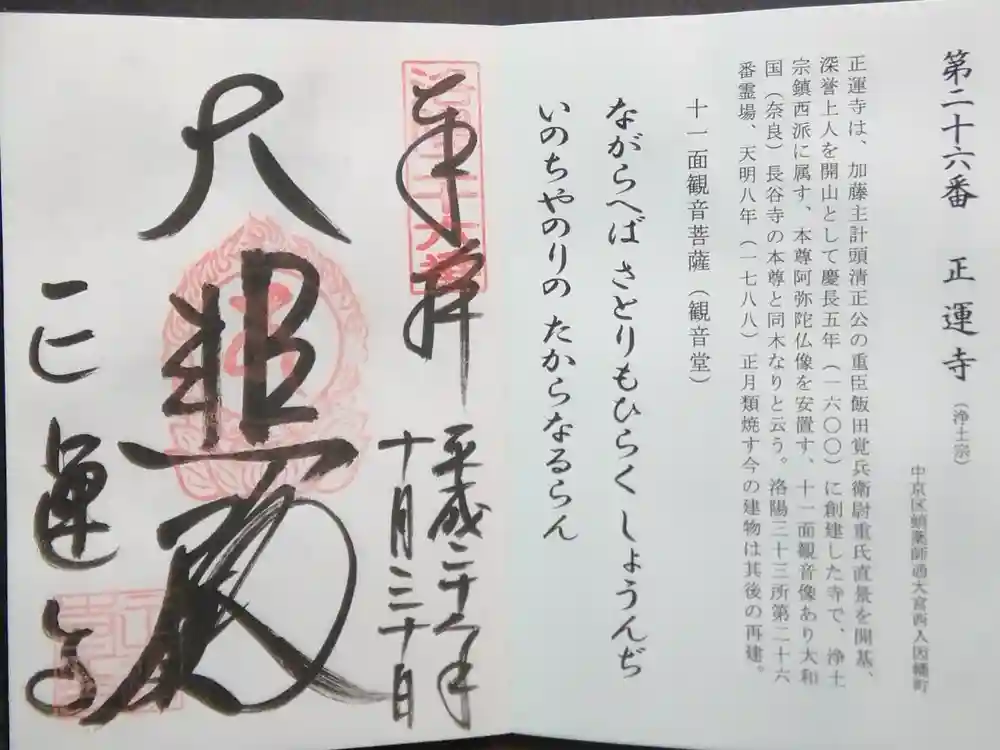 第二十六番 正運寺（浄土宗）
中京区蛸薬師通大宮西入因幡町
正運寺は、加藤主計頭清正公の重臣飯田覚兵衛尉重氏直景を開基、
深誉上人を開山として慶長五年（一六〇〇）に創建した寺で、浄土
宗鎮西派に属す、本尊阿弥陀仏像を安置す、十一面観音像あり大和
国（奈良）長谷寺の本尊と同木なりと云う。洛陽三十三所第二十六
番霊場、天明八年（一七八八）正月類焼す今の建物は其後の再建。
十一面観音菩薩（観音堂）
ながらへば さとりもひらく しょううんぢ
いのちやのりの たからなるらん
奉拝
平成二十八年
十月三十日
大悲殿
正運寺